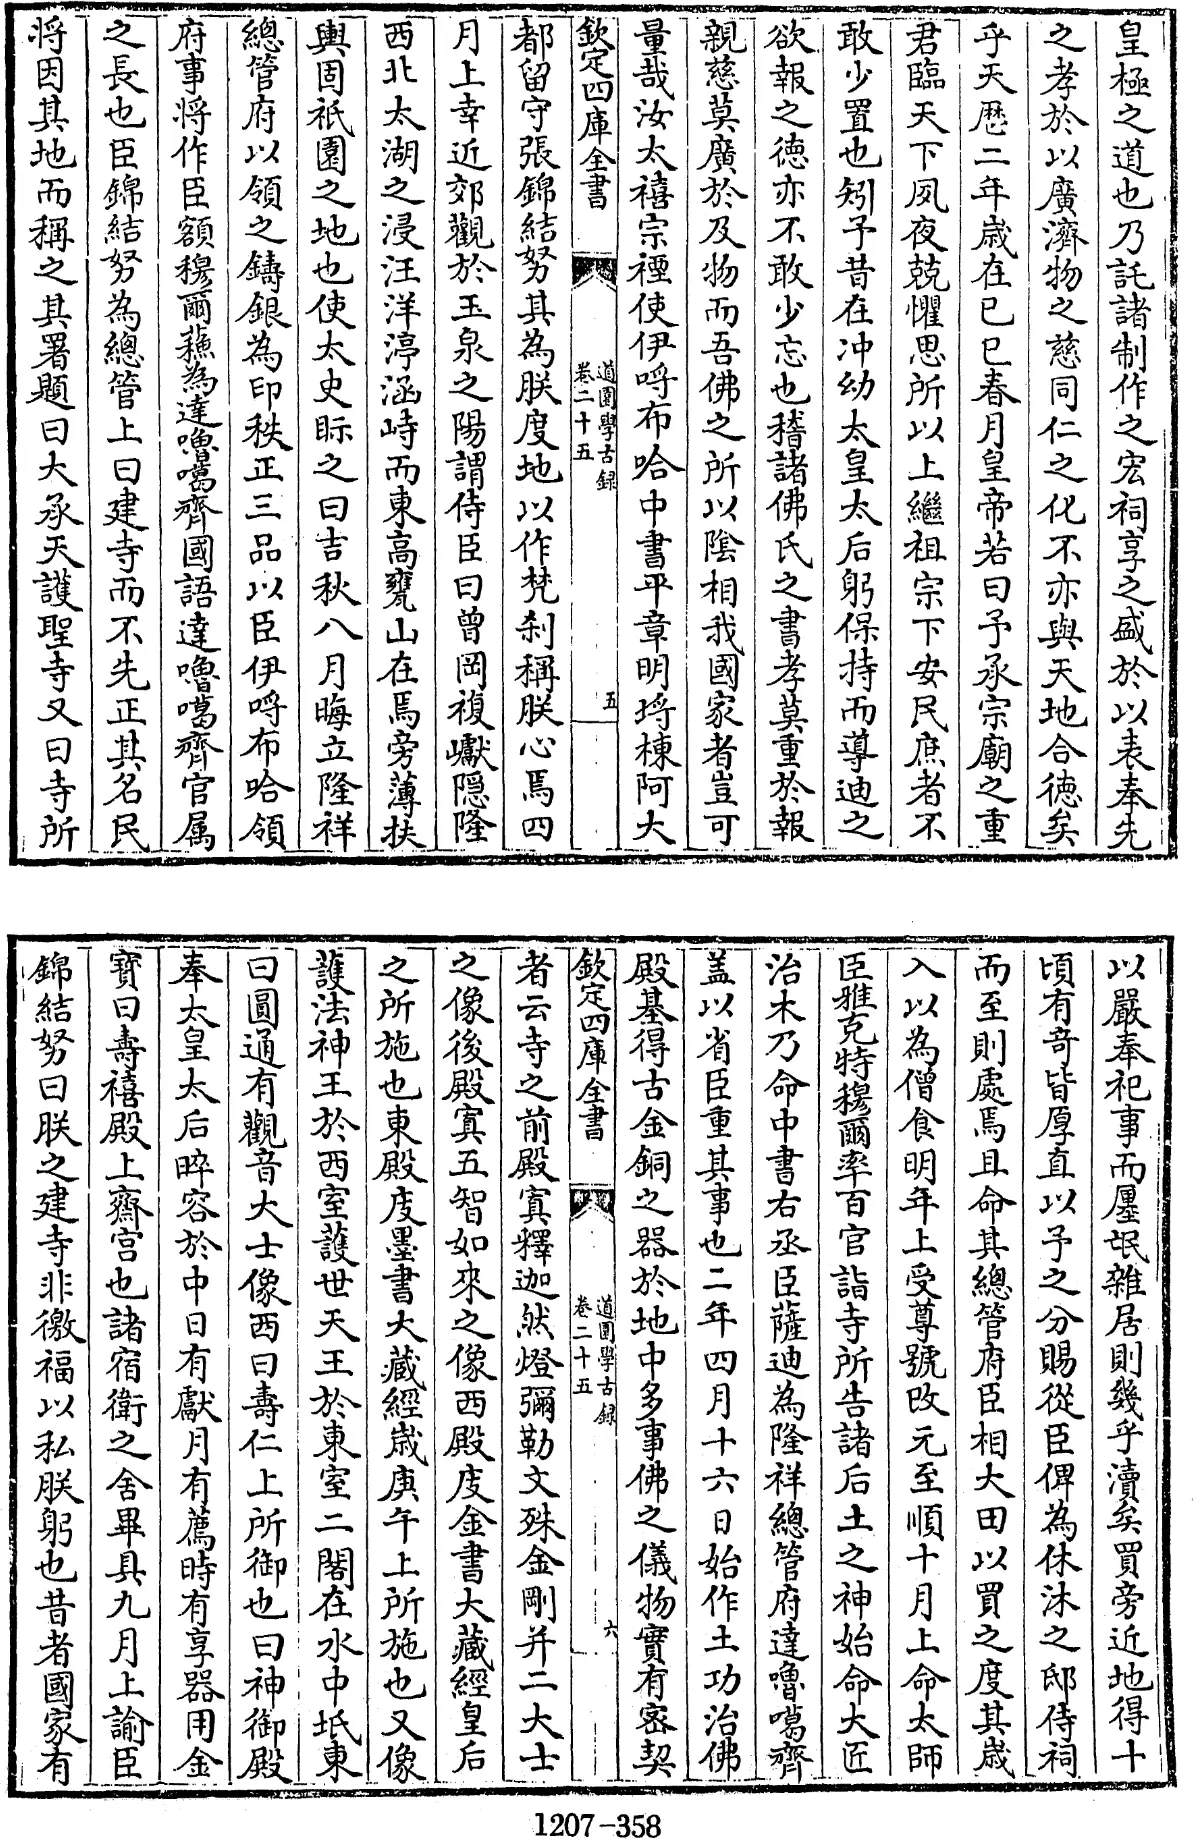 皇極之道也乃託諸制作之宏祠享之盛於以表奉先
之孝於以廣濟物之慈同仁之化不亦與天地合德矣
乎天歴二年歲在己巳春月皇帝若曰予承宗廟之重
君臨天下夙夜兢懼思所以上繼祖宗下安民庶者不
敢少置也矧予昔在冲幼太皇太后躬保持而導迪之
欲報之德亦不敢少忘也稽諸佛氏之書孝莫重於報
親慈莫廣於及物而吾佛之所以陰相我國家者豈可
量哉汝太禧宗禋使伊嘑布哈中書平章明埒棟阿大
欽定四庫全書
道園學古録
卷二十五
五
都留守張錦結努其為朕度地以作梵刹稱朕心焉四
月上幸近郊觀於玉泉之陽謂侍臣曰曾岡複巘隠隆
西北太湖之浸汪洋渟涵峙而東高甕山在焉旁薄扶
輿固祇園之地也使太史眎之曰吉秋八月晦立隆祥
總管府以領之鑄銀為印秩正三品以臣伊嘑布哈領
府事將作臣額穆爾蘓為達嚕噶齊國語達嚕噶齊官属
之長也臣錦結努為總管上曰建寺而不先正其名民
將因其地而稱之其署題曰大承天護聖寺又曰寺所
以嚴奉祀事而廛氓雜居則幾乎瀆矣買旁近地得十
頃有奇皆厚直以予之分賜從臣俾為休沐之邸侍祠
而至則處焉且命其總管府臣相大田以買之度其歲
入以為僧食明年上受尊號改元至順十月上命太師
臣雅克特穆爾率百官詣寺所告諸后土之神始命大匠
治木乃命中書右丞臣薩迪為隆祥總管府達嚕噶齊
盖以省臣重其事也二年四月十六日始作土功治佛
殿基得古金銅之器於地中多事佛之儀物實有宻契
欽定四庫全書
道園學古録
卷二十五
六
者云寺之前殿寘釋迦然燈彌勒文殊金剛并二大士
之像後殿寘五智如來之像西殿庋金書大藏經皇后
之所施也東殿庋墨書大藏經歲庚午上所施也又像
護法神王於西室護世天王於東室二閣在水中坻東
曰圓通有觀音大士像西曰壽仁上所御也曰神御殿
奉太皇太后晬容於中日有獻月有薦時有享器用金
寳曰壽禧殿上齋宫也諸宿衛之舍畢具九月上諭臣
錦結努曰朕之建寺非徼福以私朕躬也昔者國家有
1207-358